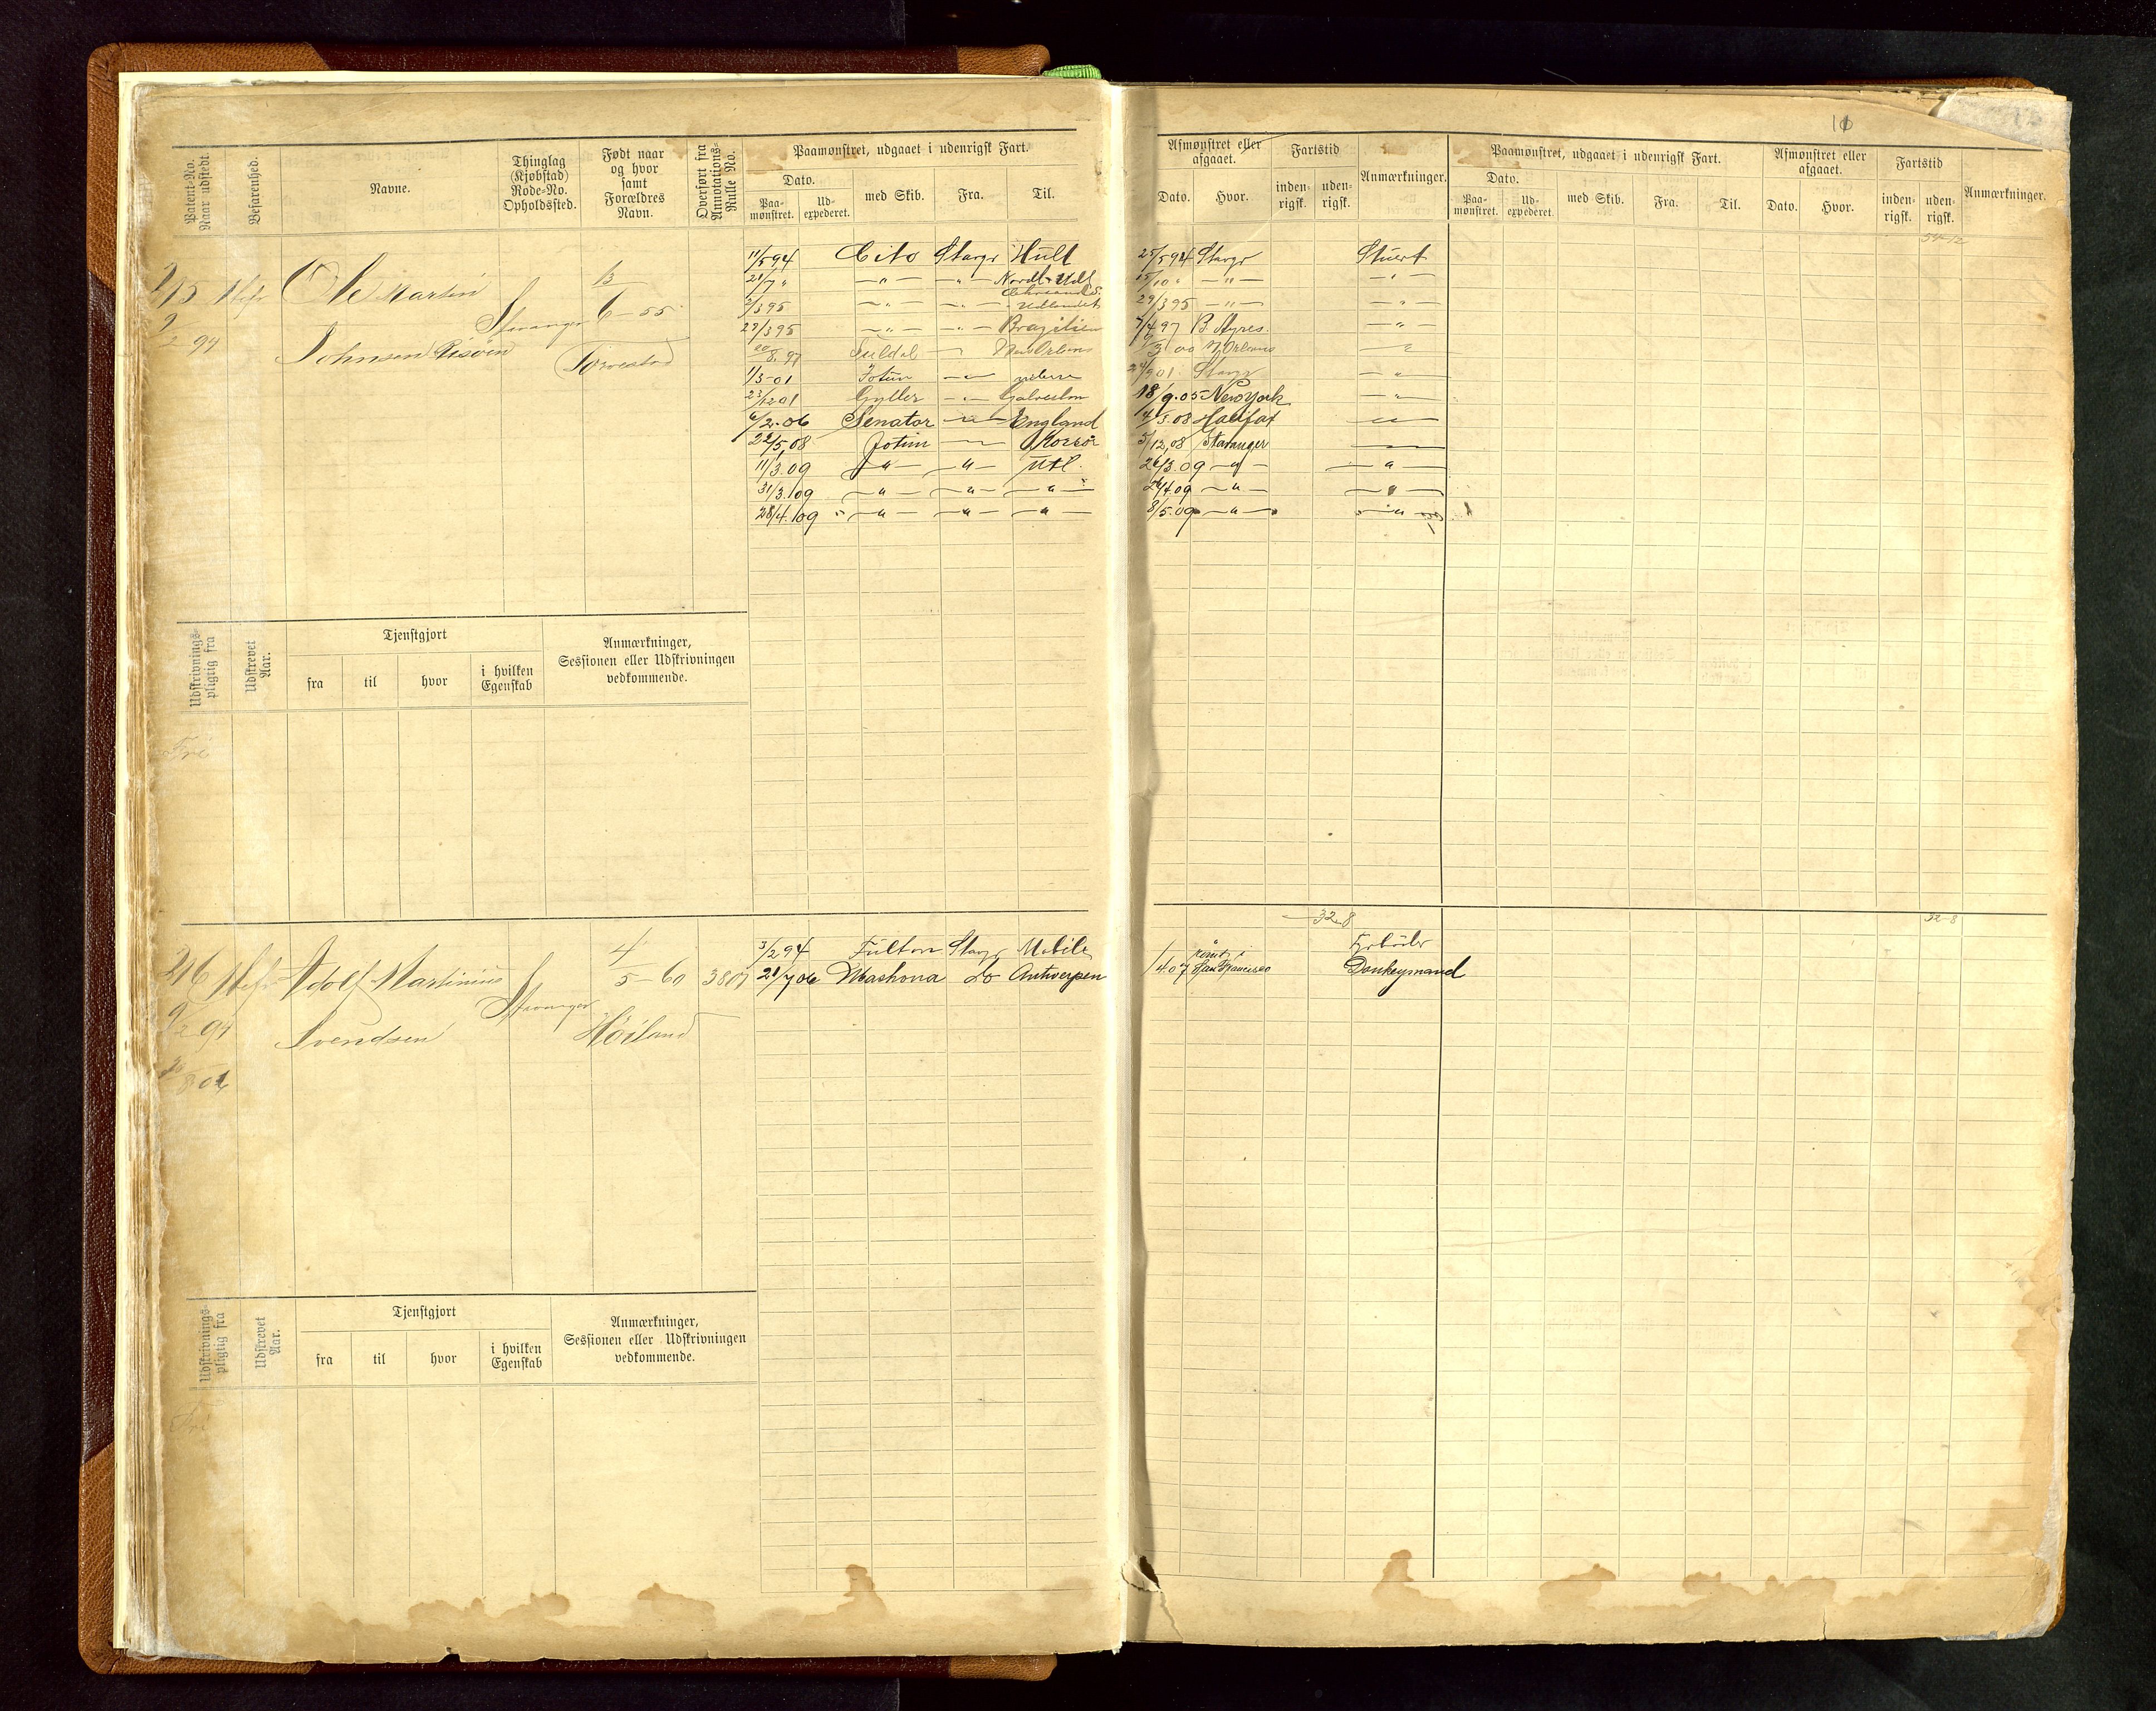 Patent-No. Naar udstedt.
Befarenhed.
Navne.
Thinglag (Kjøbstad) Rode-No. Opholdssted.
Født naar og hvor samt Forældres Navn.
Overført fra Annotations-Rulle No.
Paamønstret, udgaaet i udenrigsk Fart.
Dato.
Paa-mønstret.
Ud-expederet.
med Skib.
Fra.
Til.
Afmønstret eller afgaaet.
Dato.
Hvor.
Fartstid
inden-rigsk.
uden-rigsk.
Anmærkninger.
Paamønstret, udgaaet i udenrigsk Fart.
Dato.
Paa-mønstret.
Ud-expederet.
med Skib.
Fra.
Til.
Afmønstret eller afgaaet.
Dato.
Hvor.
Fartstid
inden-rigsk.
uden-rigsk.
Anmærkninger.
215
9/2 94
Ole Martin
Johnsen Risøen
Stavanger
6-55
Torvestad
11/5 94 Cito Stavgr Hull 25/5 94 Stavgr Stuert
21/7 " — " — — " — 15/10 " — " — — " —
2/3 95 — " — — " — Udlandet 29/3 95 — " — — " —
23/3 95 — " — — " — Brazilien 7/4 97 B. Ayres. — " —
20/8. 97 — New Orleans 9/3 00 N Orleans — " —
1/3-01 Jotun — " — Stavgr — " —
23/12 01 Gyller — " — Galveston 18/9. 05 New York — " —
6/2. 06 Senator — " — England 14/5. 08 Halifax — " —
22/5, 08 Jotun — " — Korsör 5/12, 08 Stavanger
11/3. 09 — " — — " — Utl. 26/3. 09 — " — — " —
31/3. 09 — " — — " — — " — 24/4. 09 — " — — " —
28/4. 09 — " — — " — — " — 8/5. 09 — " — — " —
Udskrivnings-pligtig fra
Udskrevet Aar.
Tjenstgjort
fra
til
hvor
i hvilken Egenskab
Anmærkninger, Sessionen eller Udskrivningen vedkommende.
Fri
32-8
32-8
216
9/2 94
Adolf Martinius
Svendsen
Stavanger
4/5-60
Höiland
3807
3/2 94 Fulton Stavgr Mobile
21/7 06 Mashona do Antwerpen 1/4 07 rømt i San Francisco Donkeymand
Udskrivnings-pligtig fra
Udskrevet Aar.
Tjenstgjort
fra
til
hvor
i hvilken Egenskab
Anmærkninger, Sessionen eller Udskrivningen vedkommende.
Fri